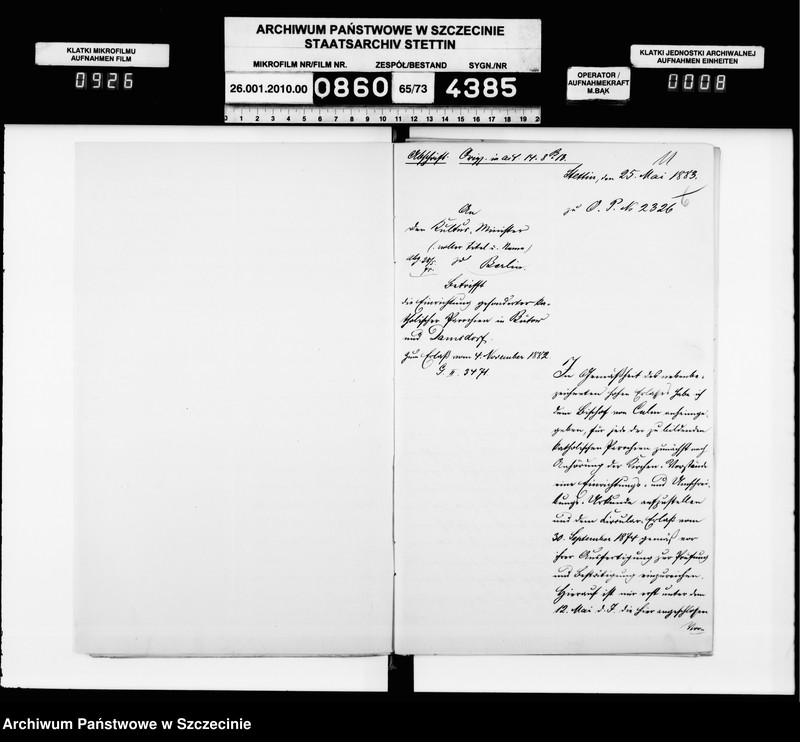 ARCHIWUM PAŃSTWOWE W SZCZECINIE
STAATSARCHIV STETTIN
MIKROFILM NR/FILM NR. ZESPÓŁ/BESTAND SYGN./NR
26.001.2010.00 0860 65/73 4385
KLATKI MIKROFILMU
AUFNAHMEN FILM
0926
OPERATOR /
AUFNAHMEKRAFT
M.BĄK
KLATKI JEDNOSTKI ARCHIWALNEJ
AUFNAHMEN EINHEITEN
0008
0 1 2 3 4 5 6 7 8 9 10 11 12 13 14 15 16 17 18 19 20 21
Abschrift. Orig. in act. 14. 8
11
Stettin, den 25. Mai 1883.
6
zu O. P. No 2326
An
den Kultus-Minister
(voller Titel u. Name)
zu Berlin.
Betrifft
die Einrichtung gesonderter ka-
tholischer Parochien in Bütow
und Damsdorf.
Zum Erlaß vom 4. November 1882
G. II. 3471
In Gemäßheit des nebenbe-
zeichneten hohen Erlasses habe ich
dem Bischof von Culm anheimge-
geben, für jede der zu bildenden
katholischen Parochien zunächst nach
Anhörung der Kirchen-Vorstände
eine Einrichtungs- und Umschrei-
bungs-Urkunde aufzustellen
und dem Circular-Erlaß vom
30. September 1874 gemäß vor
ihrer Ausfertigung zur Prüfung
und Bestätigung einzureichen.
Hierauf ist mir erst unter dem
12. Mai d. J. die hier angeschlossen
Archiwum Państwowe w Szczecinie